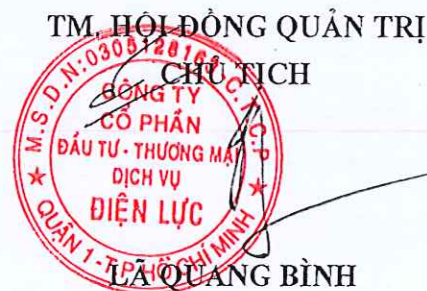 TM. HỘI ĐỒNG QUẢN TRỊ
CHỦ TỊCH
M.S.D.N:0305128163-C.T.C.P
CÔNG TY
CỔ PHẦN
ĐẦU TƯ - THƯƠNG MẠI
DỊCH VỤ
ĐIỆN LỰC
QUẬN 1 - T.P HỒ CHÍ MINH
LÃ QUANG BÌNH